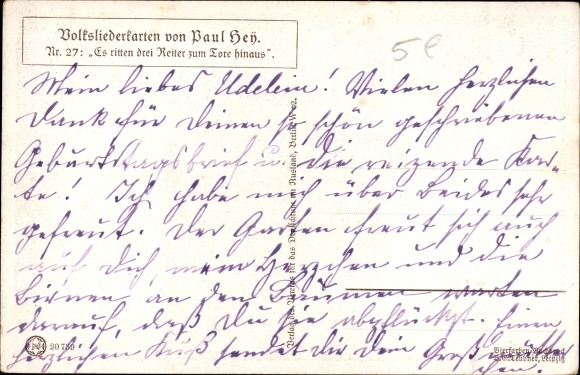 Volksliederkarten von Paul Hey.
Nr. 27: „Es ritten drei Reiter zum Tore hinaus".
5e
Mein liebes Udelein! Vielen herzlichen
Dank für Deinen so schön geschriebenen
Geburtstagsbrief u. die reizende Kar-
te! Ich habe mich über beides sehr
gefreut. Der Garten freut sich auch
auf Dich, mein Herzchen und die
Birnen an den Bäumen warten
darauf, daß Du sie abpflückst. Einen
herzlichen Kuß sendet dir dein Großmütter-
chen.
Verlag des Vereins für das Deutschtum im Ausland, Berlin W 62.
20 789
Vierfarben
Leipzig